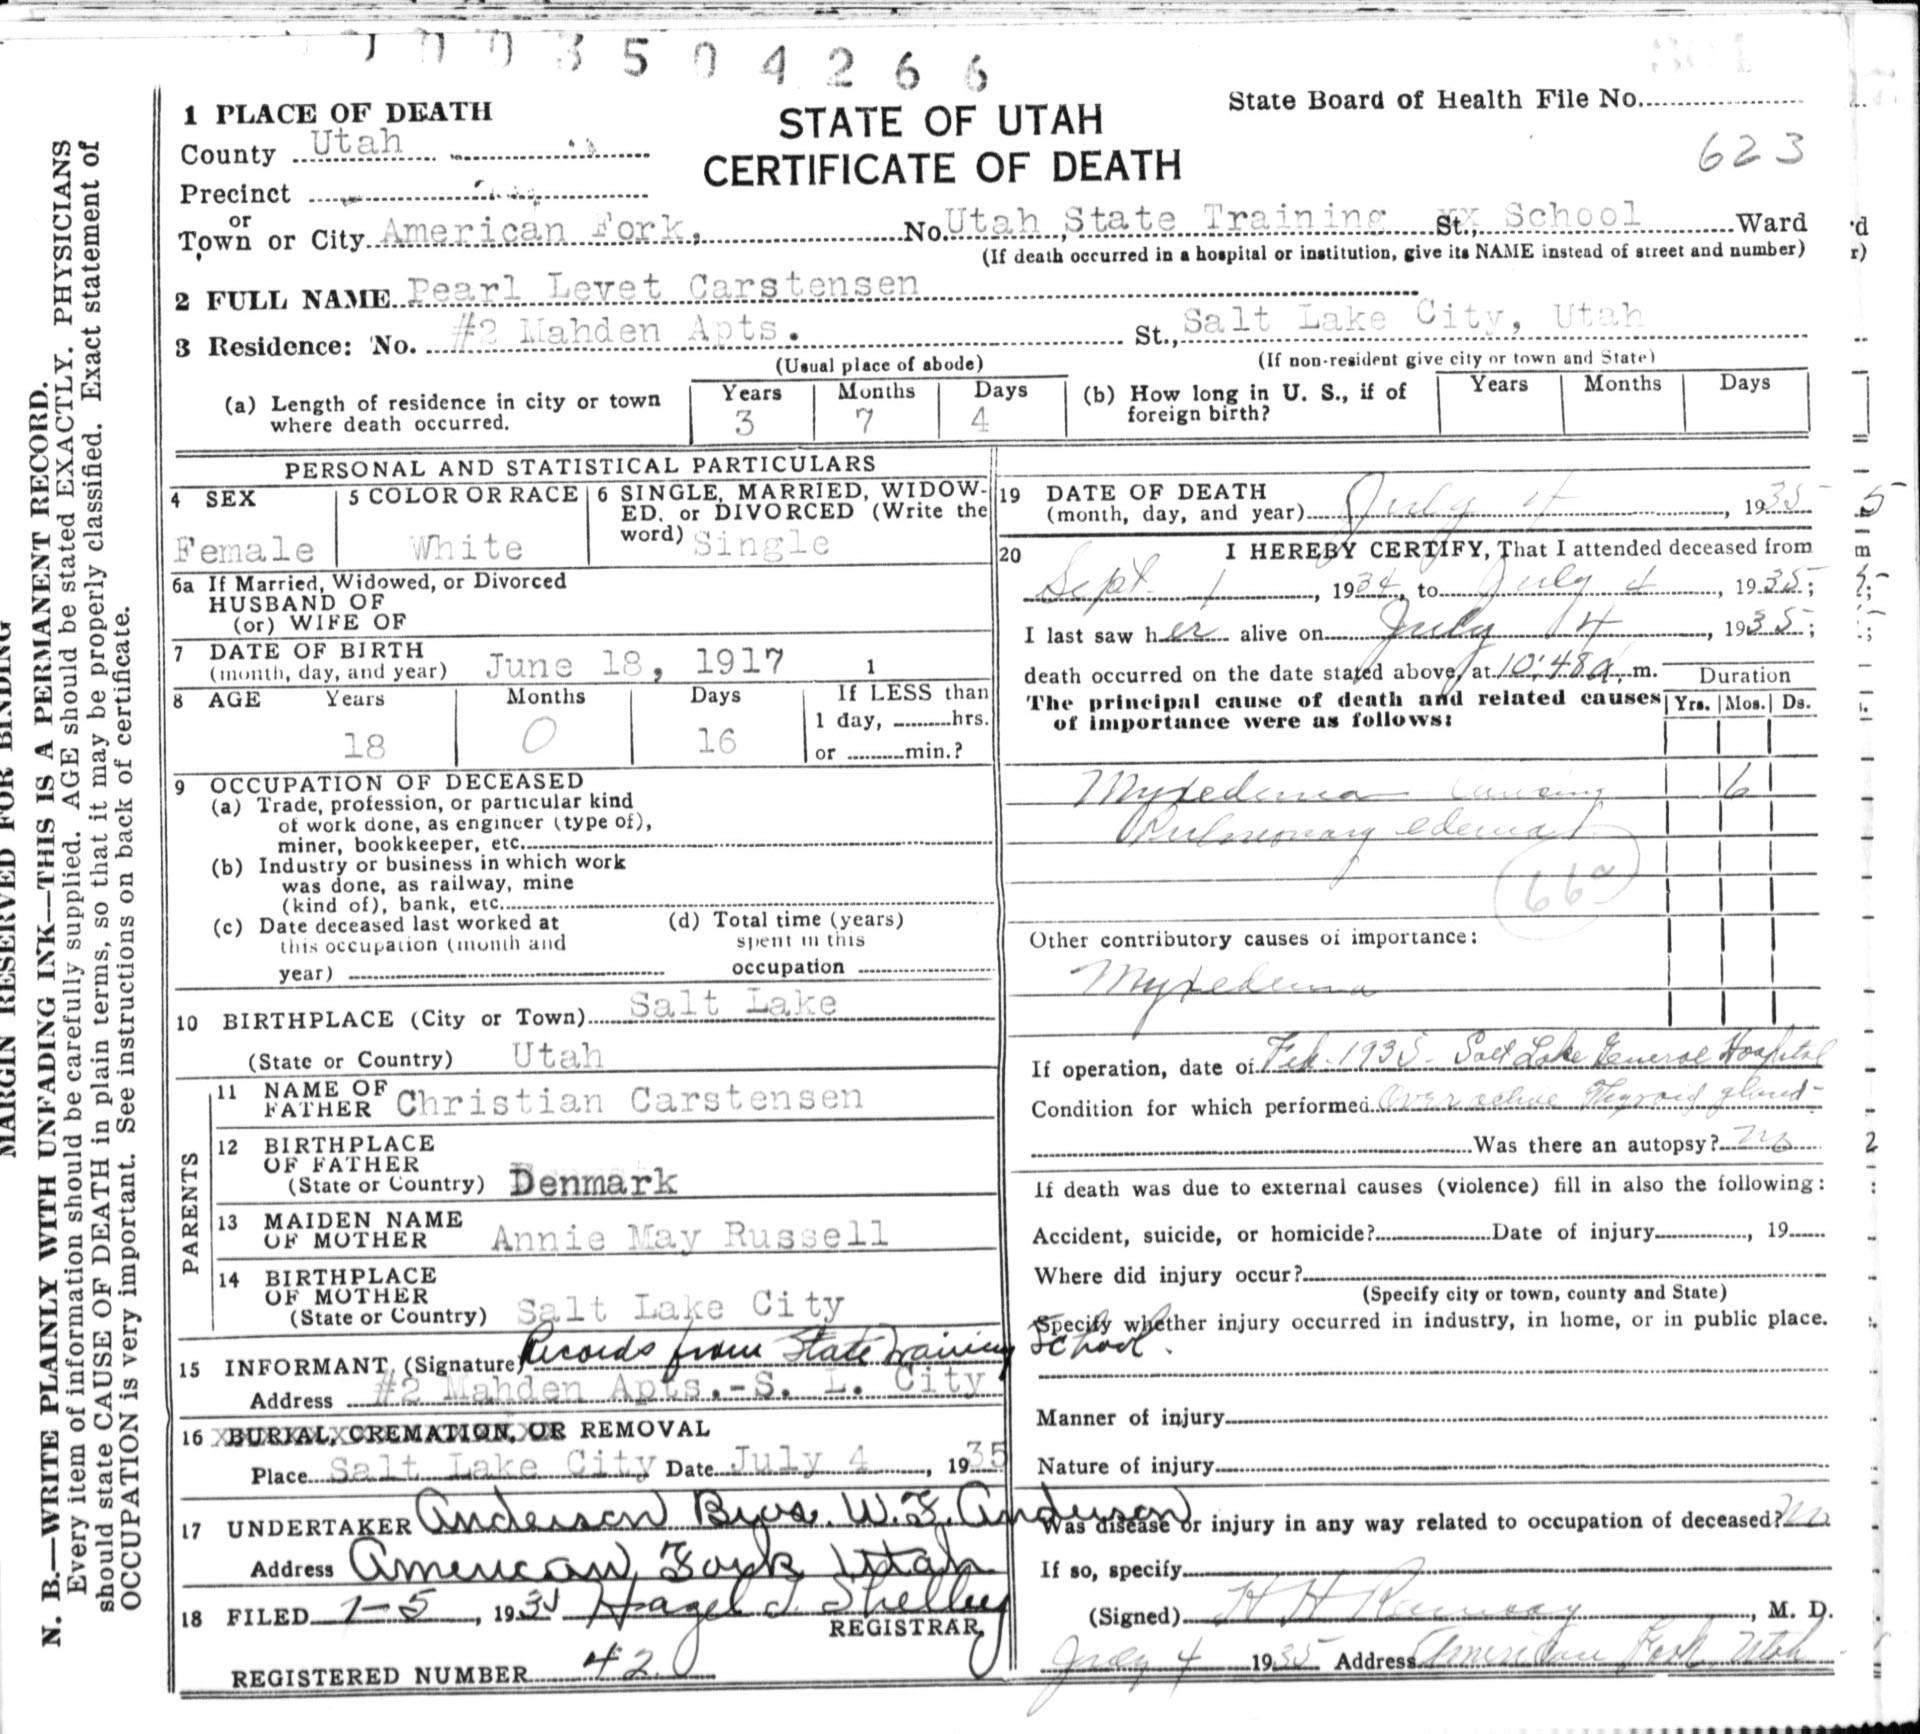 3 5 0 4 2 6 6
1 PLACE OF DEATH
County Utah
Precinct
or
Town or City American Fork,
STATE OF UTAH
CERTIFICATE OF DEATH
State Board of Health File No.
623
No. Utah State Training St., xx School Ward
(If death occurred in a hospital or institution, give its NAME instead of street and number)
2 FULL NAME Pearl Levet Carstensen
3 Residence: No. #2 Mahden Apts. St., Salt Lake City, Utah
(Usual place of abode) (If non-resident give city or town and State)
(a) Length of residence in city or town
where death occurred.
Years Months Days
3 7 4
(b) How long in U. S., if of
foreign birth?
Years Months Days
PERSONAL AND STATISTICAL PARTICULARS
4 SEX
Female
5 COLOR OR RACE
White
6 SINGLE, MARRIED, WIDOW-
ED, or DIVORCED (Write the
word) Single
6a If Married, Widowed, or Divorced
HUSBAND OF
(or) WIFE OF
7 DATE OF BIRTH
(month, day, and year) June 18, 1917 1
8 AGE Years Months Days If LESS than
1 day, hrs.
18 0 16
or min.?
9 OCCUPATION OF DECEASED
(a) Trade, profession, or particular kind
of work done, as engineer (type of),
miner, bookkeeper, etc.
(b) Industry or business in which work
was done, as railway, mine
(kind of), bank, etc.
(c) Date deceased last worked at
this occupation (month and
year)
(d) Total time (years)
spent in this
occupation
10 BIRTHPLACE (City or Town) Salt Lake
(State or Country) Utah
PARENTS
11 NAME OF
FATHER Christian Carstensen
12 BIRTHPLACE
OF FATHER
(State or Country) Denmark
13 MAIDEN NAME
OF MOTHER Annie May Russell
14 BIRTHPLACE
OF MOTHER
(State or Country) Salt Lake City
15 INFORMANT (Signature) Records from State Training School.
Address #2 Mahden Apts.-S. L. City
16 BURIAL, CREMATION, OR REMOVAL
Place Salt Lake City Date July 4, 1935
17 UNDERTAKER Anderson Bros. W.F. Anderson
Address American Fork Utah
18 FILED 7-5, 1935 Hazel I. Shelley
REGISTRAR
REGISTERED NUMBER 42
19 DATE OF DEATH
(month, day, and year) July 4, 1935
20 I HEREBY CERTIFY, That I attended deceased from
Sept 1, 1934, to July 4, 1935;
I last saw her alive on July 4, 1935;
death occurred on the date stated above, at 10:48 a. m.
The principal cause of death and related causes
of importance were as follows:
Duration
Yrs. Mos. Ds.
Myxedema causing 6
Pulmonary edema
66a
Other contributory causes of importance:
Myxedema
If operation, date of Feb-1935- Salt Lake General Hospital
Condition for which performed Over active Thyroid gland-
Was there an autopsy? No
If death was due to external causes (violence) fill in also the following:
Accident, suicide, or homicide? Date of injury , 19
Where did injury occur?
(Specify city or town, county and State)
Specify whether injury occurred in industry, in home, or in public place.
Manner of injury
Nature of injury
Was disease or injury in any way related to occupation of deceased? No
If so, specify
(Signed) H H Ramsay, M. D.
July 4 1935 Address American Fork, Utah
MARGIN RESERVED FOR BINDING
N. B.—WRITE PLAINLY WITH UNFADING INK—THIS IS A PERMANENT RECORD.
Every item of information should be carefully supplied. AGE should be stated EXACTLY. PHYSICIANS
should state CAUSE OF DEATH in plain terms, so that it may be properly classified. Exact statement of
OCCUPATION is very important. See instructions on back of certificate.